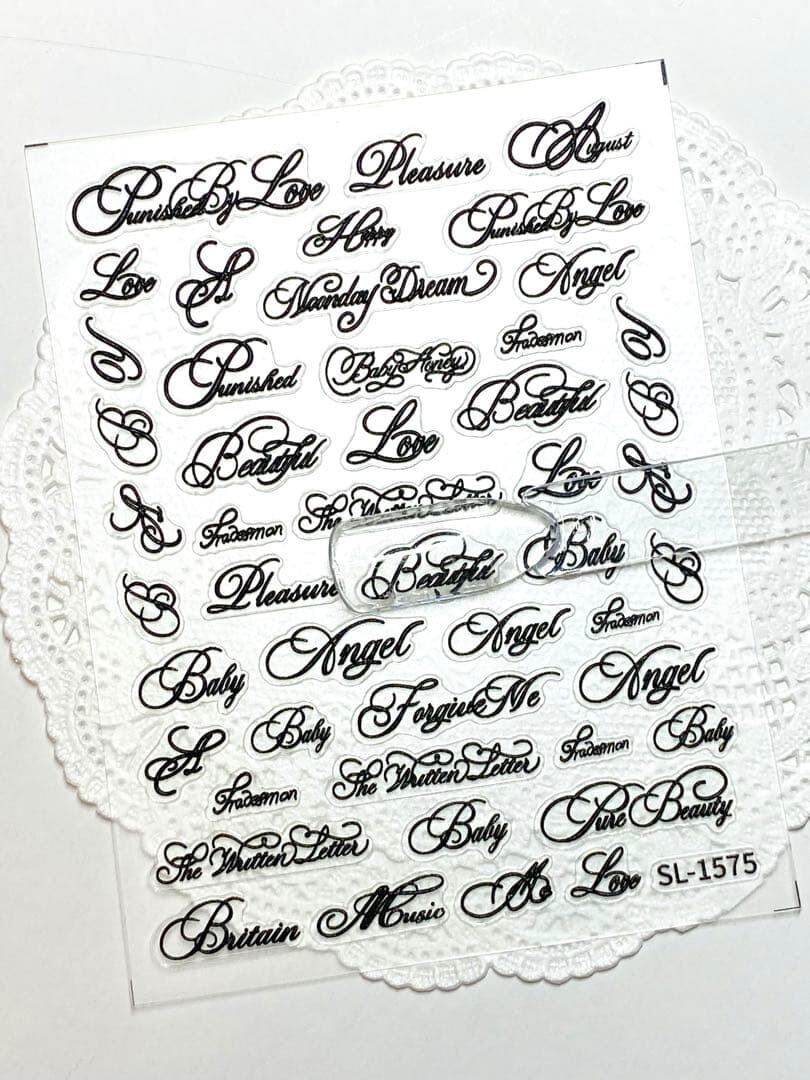 Punished By Love Pleasure August
Happy Punished By Love
Love A Noonday Dream Angel
Punished Baby Honey Tradesman
B Beautiful Love Beautiful B
Tradesman The Written Letter Love
B Pleasure Beautiful Baby B
Angel Angel Tradesman
Baby Forgive Me Angel
A Baby The Written Letter Tradesman Baby
Tradesman
The Written Letter Baby Pure Beauty
Britain Music Love SL-1575